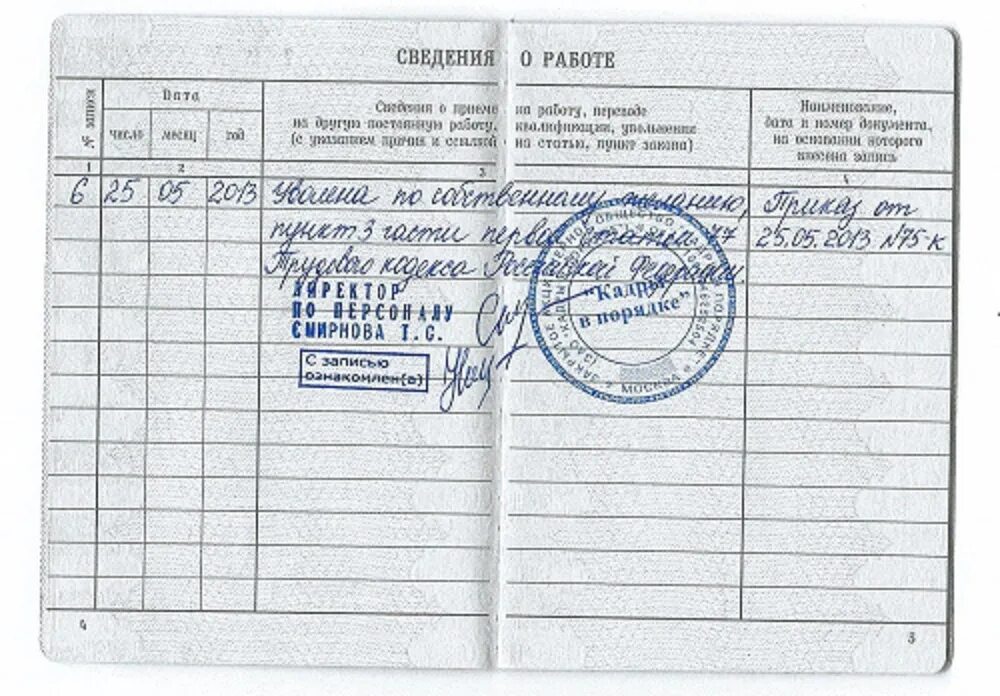 СВЕДЕНИЯ О РАБОТЕ
№ записи
Дата
число месяц год
Сведения о приеме на работу, переводе
на другую постоянную работу, квалификации, увольнении
(с указанием причин и ссылкой на статью, пункт закона)
Наименование,
дата и номер документа,
на основании которого
внесена запись
1 2 3 4
6 25 05 2013 Уволена по собственному желанию,
пункт 3 части первой статьи 77
Трудового кодекса Российской Федерации
Приказ от
25.05.2013 №75-к
ДИРЕКТОР
ПО ПЕРСОНАЛУ
СМИРНОВА Т.С.
С записью
ознакомлен(а)
"Кадры
в порядке"
ЗАКРЫТОЕ АКЦИОНЕРНОЕ ОБЩЕСТВО
МОСКВА
4
5